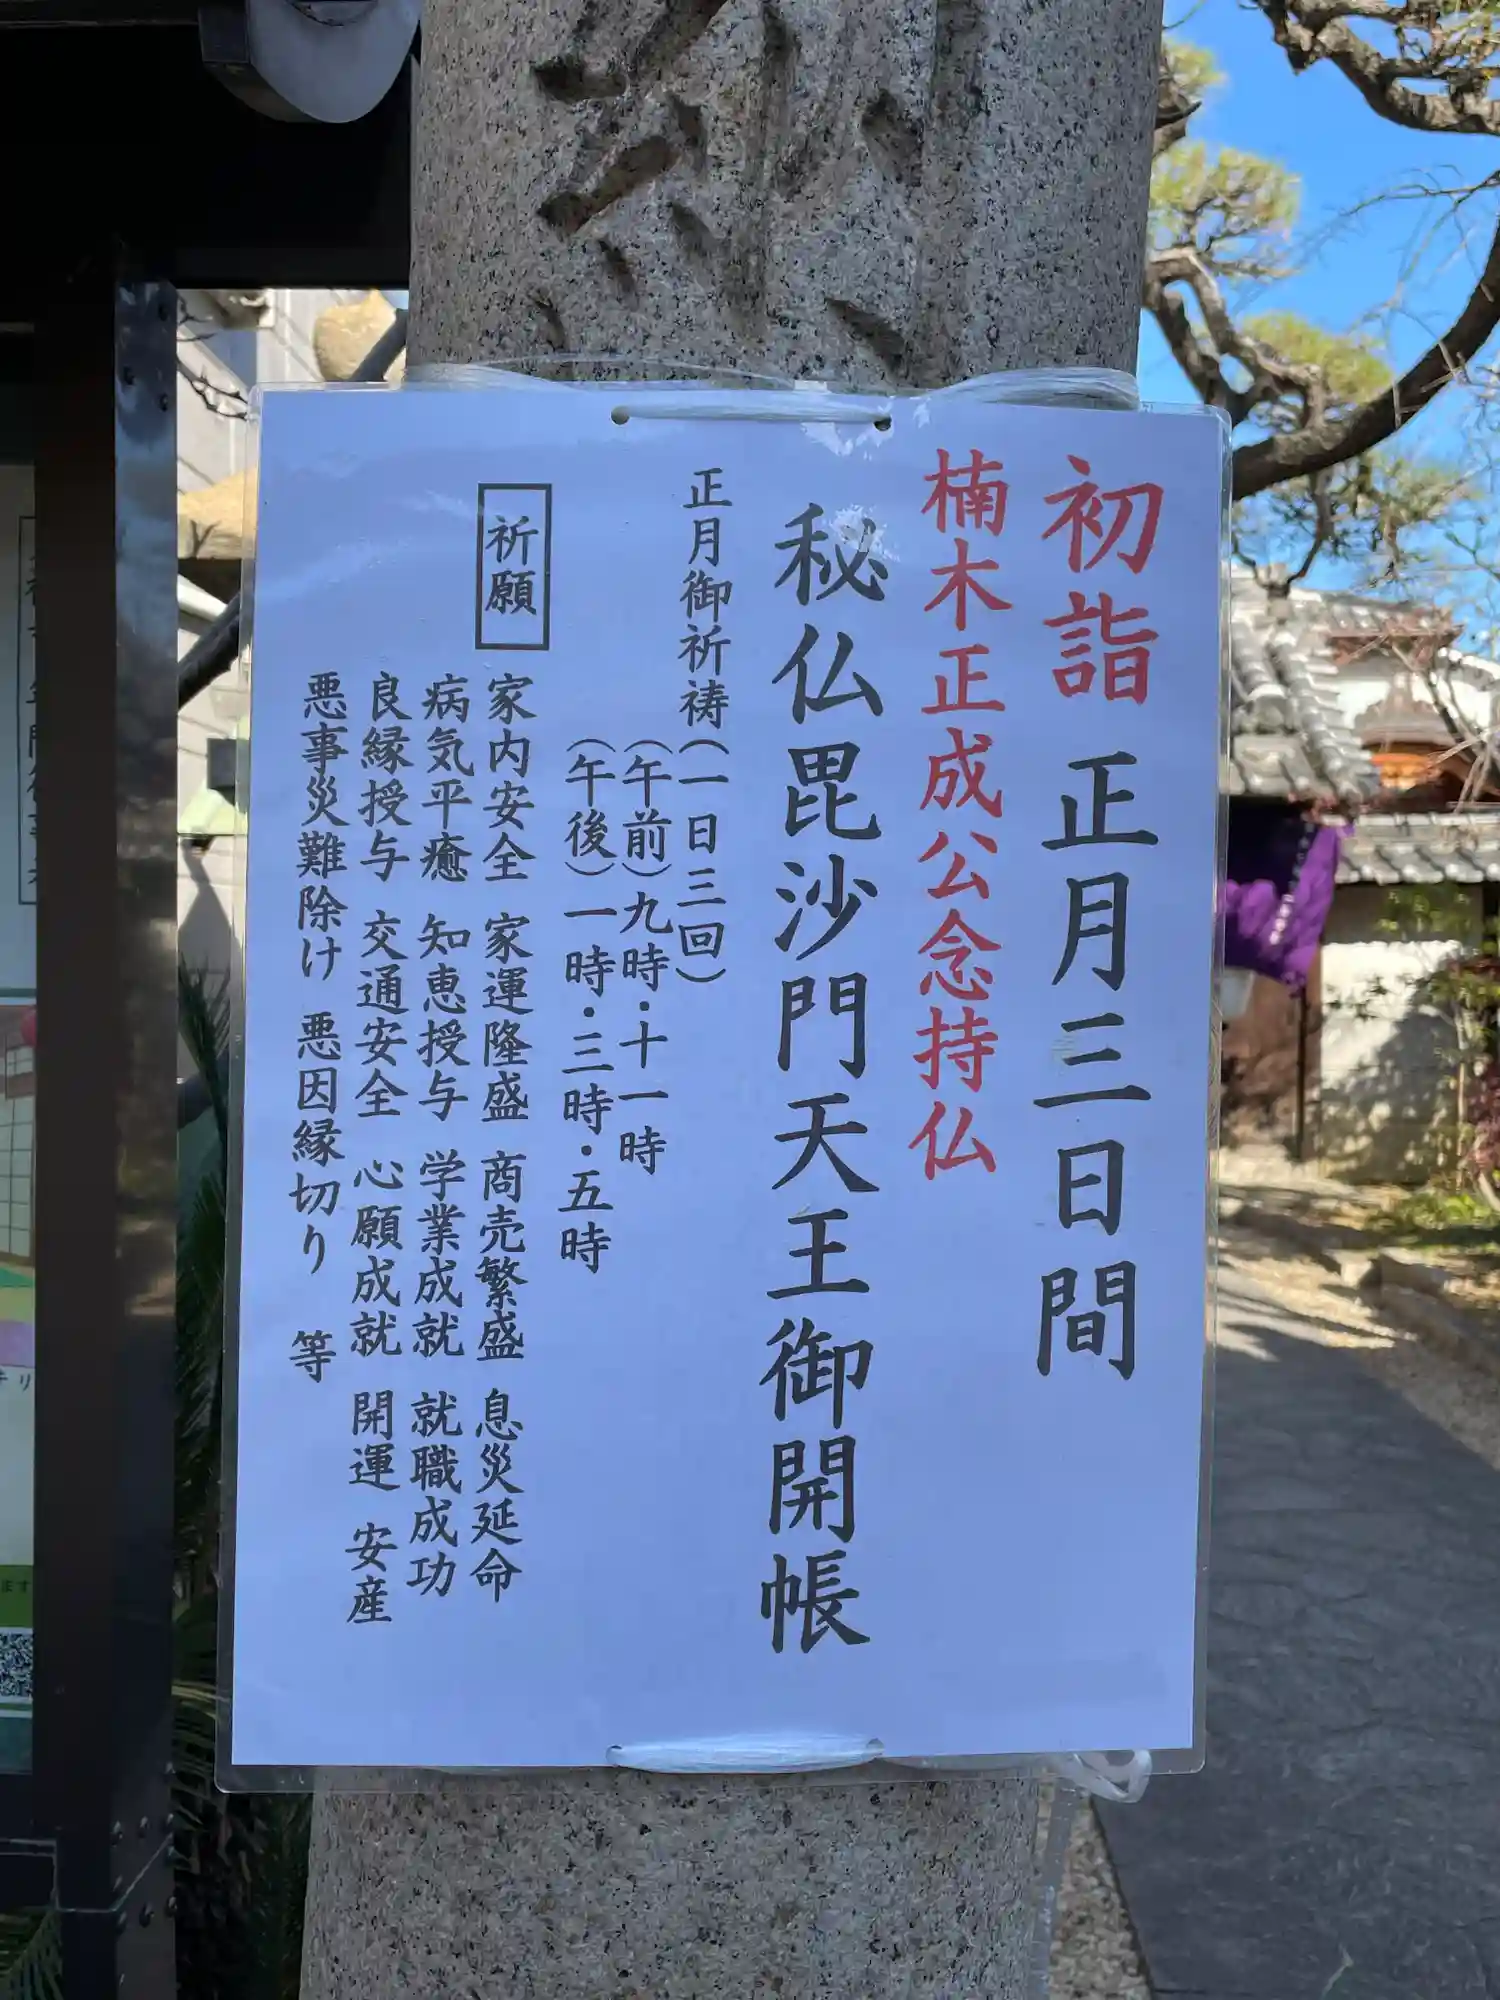 初詣 正月三日間
楠木正成公念持仏
秘仏毘沙門天王御開帳
正月御祈祷(一日三回)
(午前)九時・十一時
(午後)一時・三時・五時
祈願
家内安全 家運隆盛 商売繁盛 息災延命
病気平癒 知恵授与 学業成就 就職成功
良縁授与 交通安全 心願成就 開運 安産
悪事災難除け 悪因縁切り 等